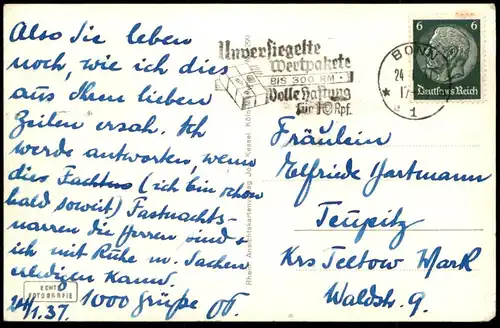 Also Sie leben
noch, wie ich dies
aus Ihren lieben
Zeilen ersah. Ich
werde antworten, wenn
dies (ich bin schon
bald soweit) Fastnachts-
narren die Herren sind u.
ich mit Ruhe m. Sachen
erledigen kann.
24/1.37. 1000 Grüße
ECHTE
FOTOGRAFIE
Unversiegelte
Wertpakete
BIS 300 RM
Volle Haftung
für 10 Rpf.
BONN
24
17
* 1
6 6
Deutsches Reich
Fräulein
Elfriede Hartmann
Teupitz
Krs Teltow Mark
Waldstr. 9.